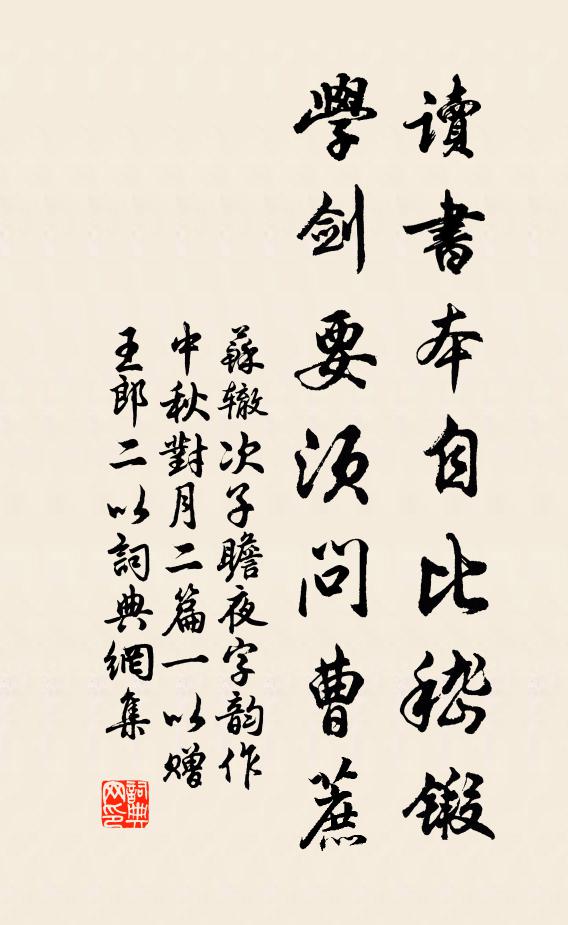 讀書本自比嵇鍛
學劍要須問曹蔗
蘇辙次子瞻夜字韵作
中秋對月二篇一以赠
王郎二以詞典網集
詞典網印